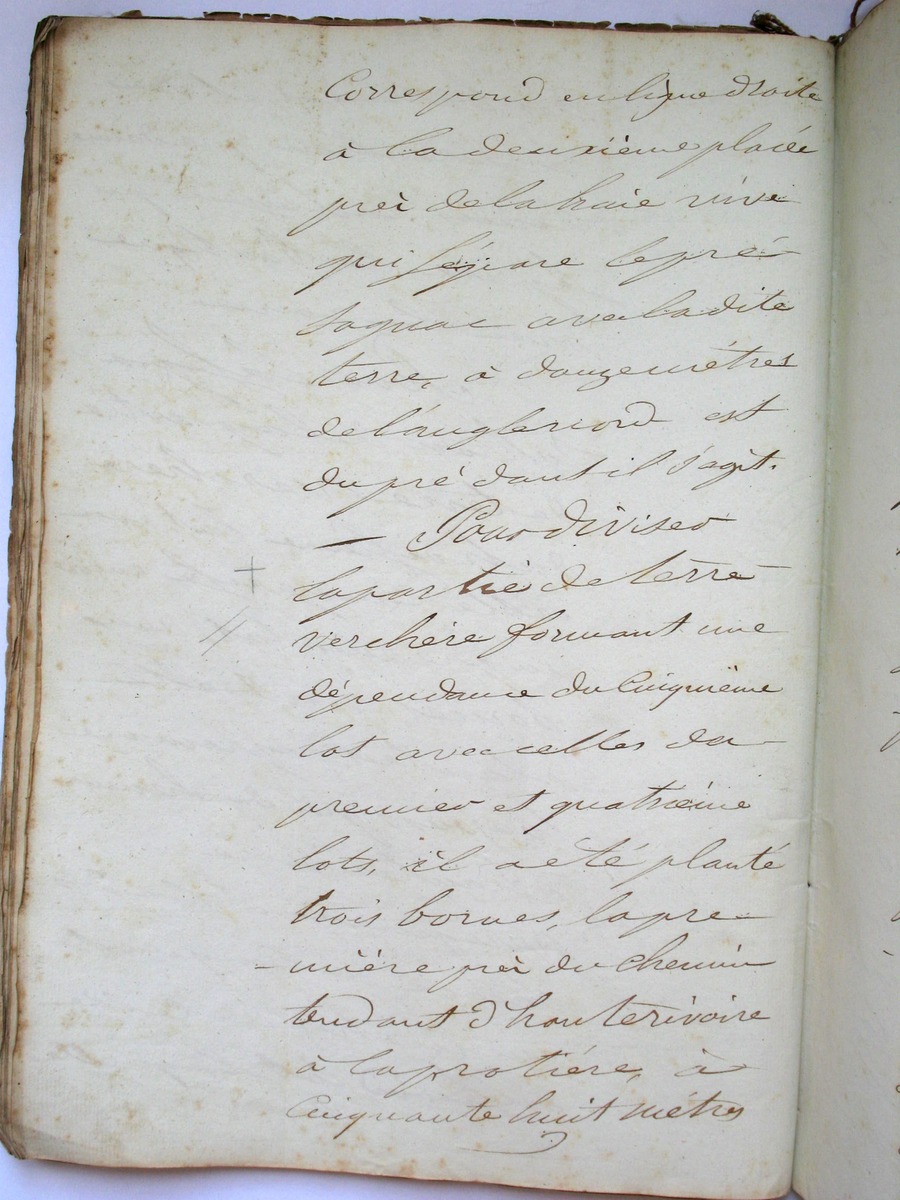 Correspond en ligne droite
à la deuxième placée
près de la haie vive
qui sépare le pré
Sagnac avec la dite
terre, à douze métres
de l'angle nord est
du pré dont il s'agit.
— Pour diviser
la partie de terre
verchère formant une
dépendance du Cinquième
lot avec celles du
premier et quatrième
lots, il a été planté
trois bornes, la pre-
- mière près du chemin
tendant d'hauterivoire
à laprotière, à
Cinquante huit métres